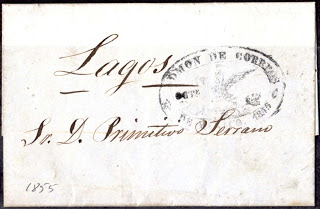 Lagos
DE CORREOS
Sr. D. Primitivo Serrano
1855